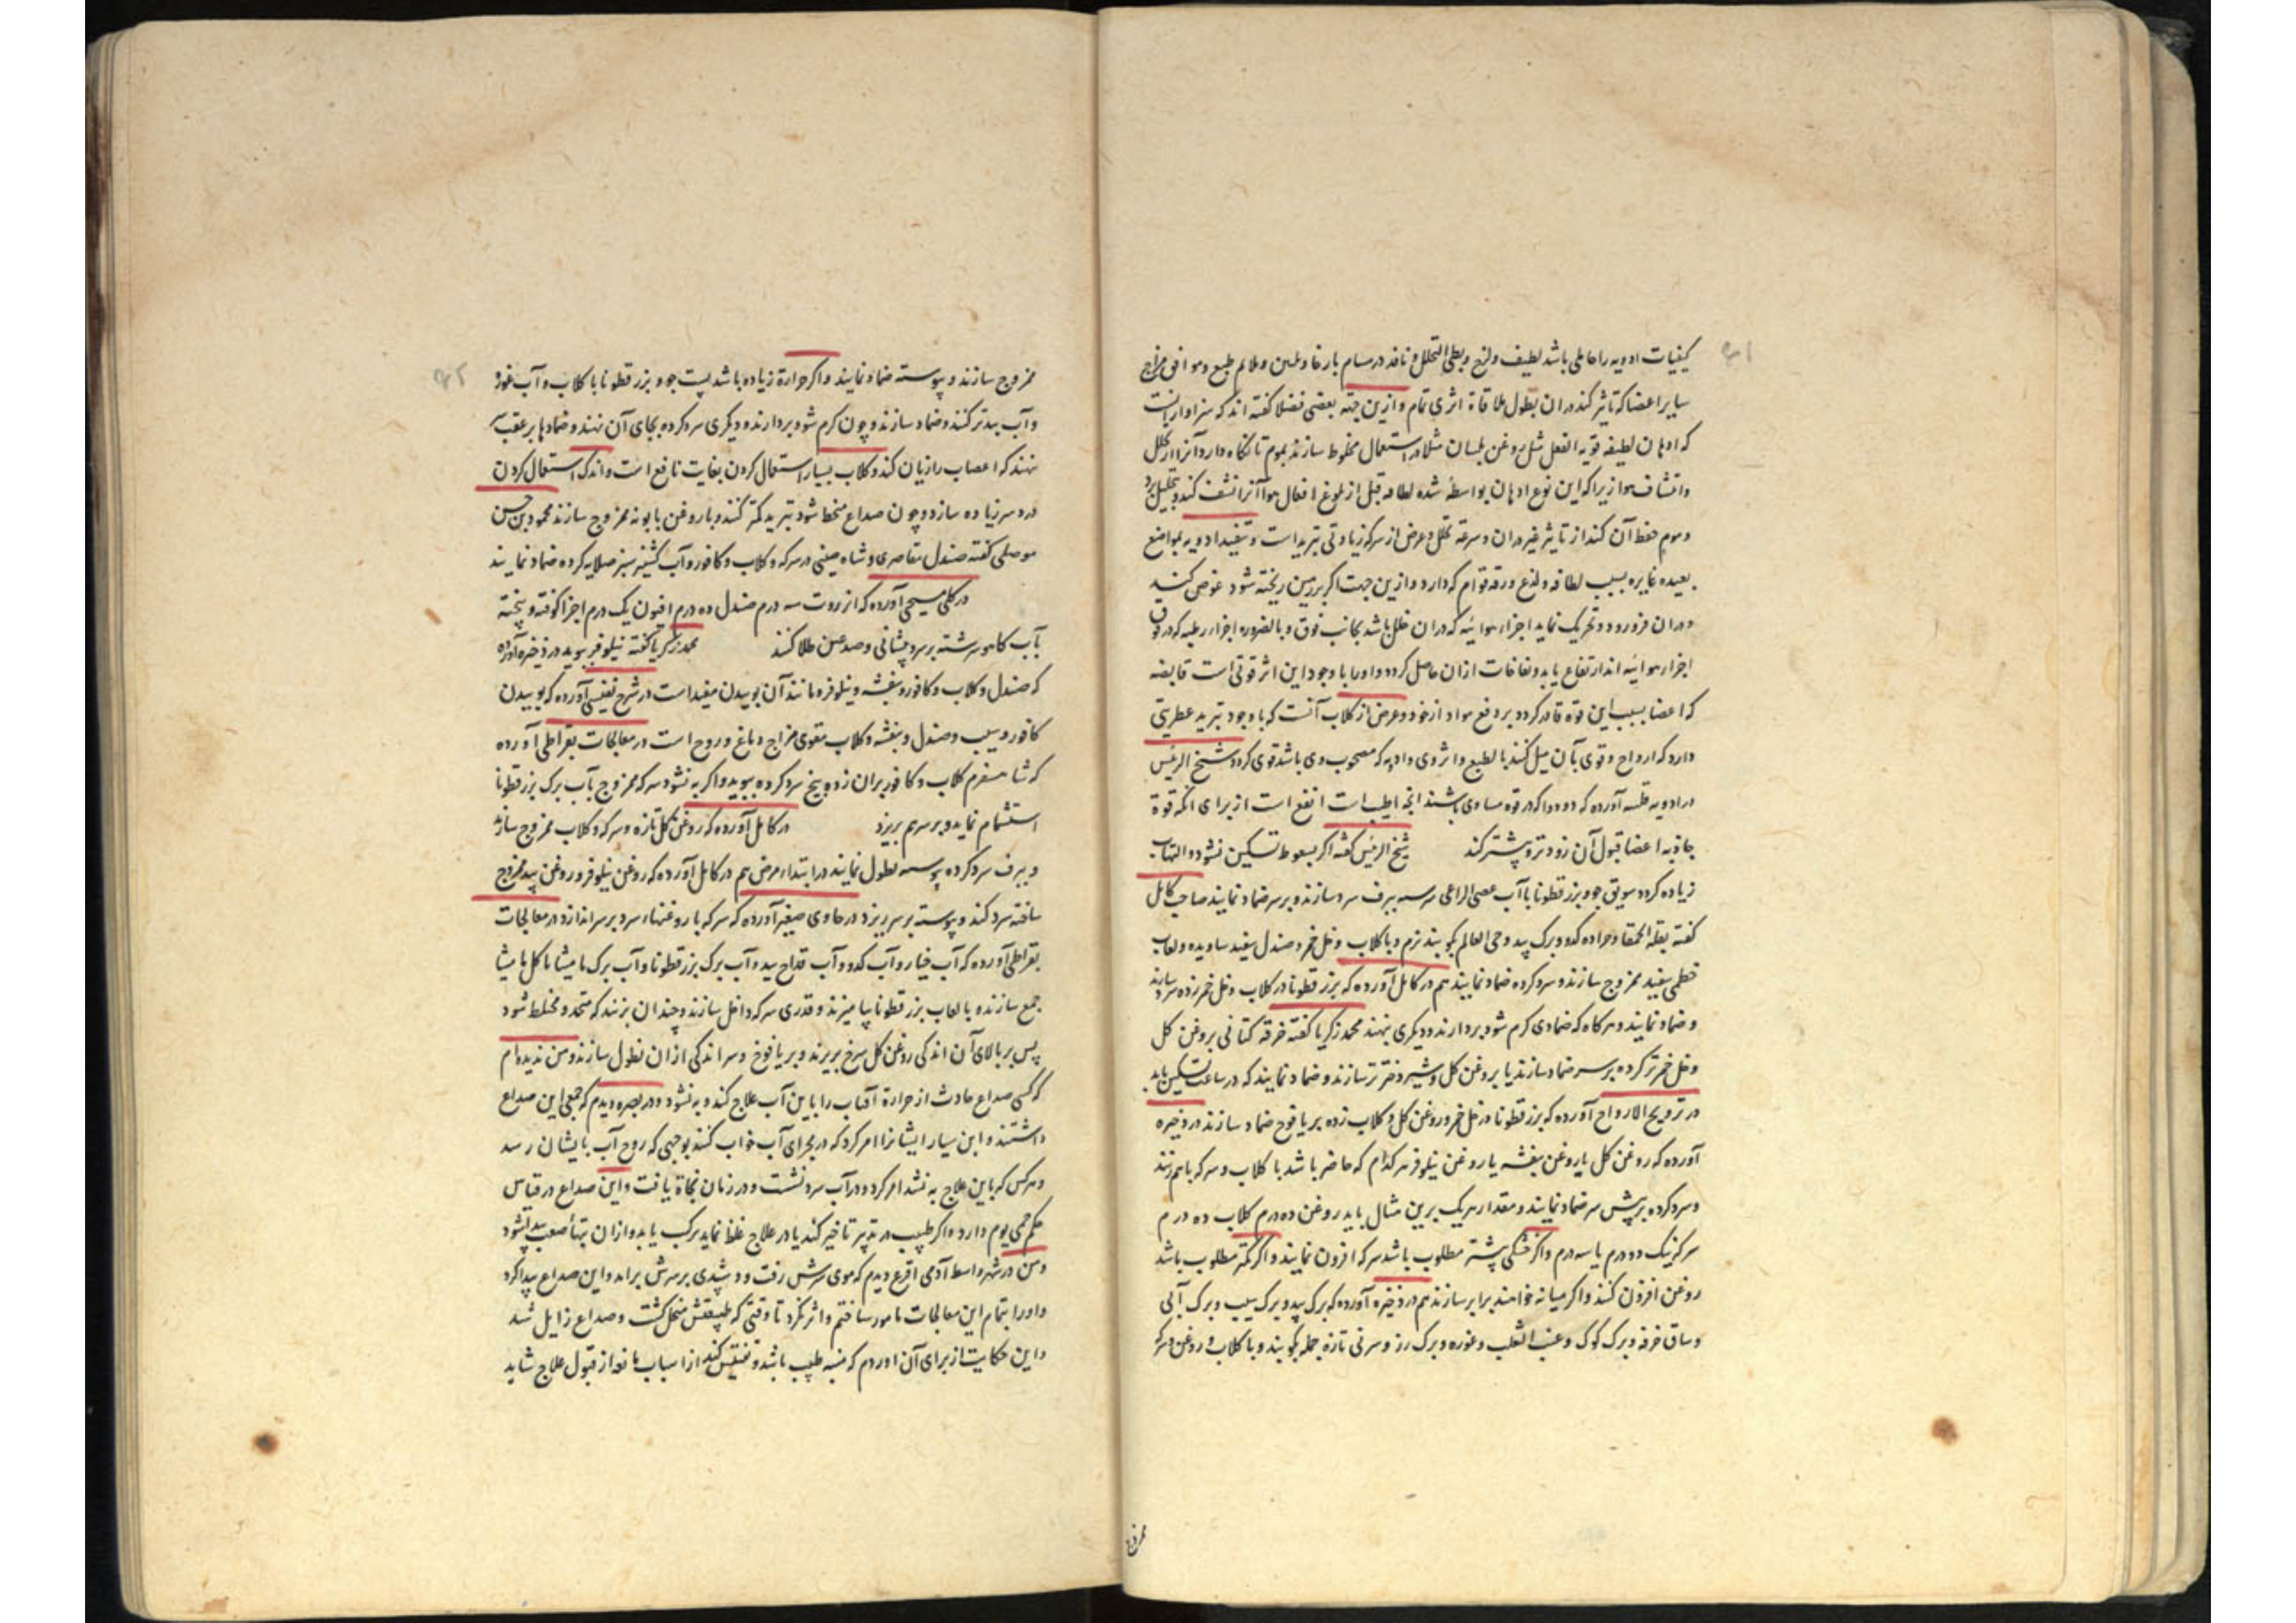 کیفیات ادویه را حاملی باشد لطیف و لزج و بطی التحلل و نافذ در مسام بارخا و لمین و ملایم طبع و موافق مزاج
سایر اعضا که تاثیر کند در ان بطول ملاقاة اثری تمام و ازین جهة بعضی فضلا گفته اند که سزاوار انست
که ادهان لطیفه قویه الفعل مثل روغن بلسان مثلا در استعمال مخلوط سازند بموم تا نگاه دارد آنرا از تحلل
و انتشاف هوا زیرا که این نوع ادهان بواسطه شده لطافه قبل از بلوغ افعال هوا آنرا نشف کند و تحلیل برد
و موم حفظ آن کند از تاثیر غیر در ان و سرعة تحلل و غرض از سرکه زیادتی تبرید است و تنفیذ ادویه بمواضع
بعیده غایره بسبب لطافه و لذع و رقه قوام که دارد و ازین جهت اگر بر زمین ریخته شود غوص کند
در ان فرو رود و تحریک نماید اجزاء هوائیه که در ان خلل باشد بجانب فوق و بالضروره اجزاء رطبه که در فوق
اجزاء هوائیه اند ارتفاع یابد و نفاخات ازان حاصل گردد و اورا با وجود این اثر قوتی است قابضه
که اعضا بسبب این قوه قادر گردد بر دفع مواد از خود و غرض از کلاب آنست که با وجود تبرید عطریتی
دارد که ارواح و قوی بآن میل کنند بالطبع و اثر وی و ادویه که مصحوب وی باشد قوی گردد شیخ الرئیس
در ادویه قلبیه آورده که دو دوا که در قوه مساوی باشند انچه اطیب است انفع است از برای انکه قوة
جاذبه اعضا قبول آن زودتر و بیشتر کند شیخ الرئیس گفته اگر بسعوط تسکین نشود و التهاب
زیاده گردد سویق جو و بزرقطونا با آب عصی الراعی سرشته ببرف سرد سازند و بر سر ضماد نمایند صاحب کامل
گفته بقلة الحمقا و جراده کدو و برگ بید و حی العالم بکوبند نرم و با کلاب و خل خمر و صندل سفید ساویده و لعاب
خطمی سفید ممزوج سازند و سرد کرده ضماد نمایند هم در کامل آورده که بزرقطونا در کلاب و خل خمر زده سرد سازند
و ضماد نمایند و هرکاه که ضمادی گرم شود بردارند و دیگری بنهند محمد زکریا گفته خرقه کتانی بروغن گل
و خل خمر تر کرده بر سر ضماد سازند یا بروغن گل و شیر دختر تر سازند و ضماد نمایند که در ساعت تسکین یابد
در ترویح الارواح آورده که بزرقطونا در خل خمر و روغن گل و کلاب زده بر یافوخ ضماد سازند در ذخیره
آورده که روغن گل یا روغن بنفشه یا روغن نیلوفر هر کدام که حاضر باشد با کلاب و سرکه باهم زنند
و سرد کرده بر پیش سر ضماد نمایند و مقدار هر یک برین مثال باید روغن ده درم کلاب ده درم
سرکه نیک دو درم یا سه درم و اگر خنکی بیشتر مطلوب باشد سرکه افزون نمایند و اگر کمتر مطلوب باشد
روغن افزون کنند و اگر میانه خواهند برابر سازند هم در ذخیره آورده که برگ بید و برگ سیب و برگ آبی
و ساق خرفه و برگ کوک و عنب الثعلب و غوره و برگ رز و سر نی تازه جمله بکوبند و با کلاب و روغن و سرکه
ممزوج
ممزوج سازند و پیوسته ضماد نمایند و اگر حرارة زیاده باشد پست جو و بزرقطونا با کلاب و آب غوره
و آب بید تر کنند و ضماد سازند و چون گرم شود بردارند و دیگری سرد کرده بجای آن نهند و ضمادها بر عقب
ننهند که اعصاب را زیان کند و کلاب بسیار استعمال کردن بغایت نافع است و اندک استعمال کردن
درد سر زیاده سازد و چون صداع منحط شود تبرید کمتر کنند و با روغن بابونه ممزوج سازند محمود بن حسن
موصلی گفته صندل مقاصری و شاه صینی در سرکه و کلاب و کافور و آب کشنیز سبز صلایه کرده ضماد نمایند
در کلی مسیحی آورده که انزروت سه درم صندل ده درم افیون یک درم اجزا کوفته و بیخته
بآب کاهو سرشته بر سر و پیشانی و صدغین طلا کنند محمد زکریا گفته نیلوفر ببوید در ذخیره آورده
که صندل و کلاب و کافور و بنفشه و نیلوفر و مانند آن بوییدن مفید است در شرح نفیسی آورده که بوییدن
کافور و سیب و صندل و بنفشه و کلاب مقوی مزاج دماغ و روح است در معالجات بقراطی آورده
که شاهسفرم کلاب و کافور بران زده بیخ سرد کرده ببوید و اگر به نشود سرکه ممزوج بآب برگ بزرقطونا
استشمام نماید و بر سر هم بریزد در کامل آورده که روغن گل تازه و سرکه و کلاب ممزوج سازند
و ببرف سرد کرده پیوسته نطول نمایند در ابتداء مرض هم در کامل آورده که روغن نیلوفر و روغن بید ممزوج
ساخته سرد کنند و پیوسته بر سر ریزد در حاوی صغیر آورده که سرکه با روغنهاء سرد بر سر اندازد در معالجات
بقراطی آورده که آب خیار و آب کدو و آب قداح بید و آب برگ بزرقطونا و آب برگ مامیثا یا کل مامیثا
جمع سازند و با لعاب بزرقطونا بیامیزند و قدری سرکه داخل سازند و چندان بزنند که متحد و مختلط شود
پس بر بالای آن اندکی روغن گل سرخ بریزند و بر یافوخ و سر اندکی ازان نطول سازند و من ندیده ام
که کسی صداع حادث از حرارة آفتاب را باین آب علاج کند و به نشود و در بصره دیدم که جمعی این صداع
داشتند و ابن سیار ایشانرا امر کرد که در مجرای آب خواب کنند بوجهی که روح آب بایشان رسد
و هرکس که باین علاج به نشد امر کرد و در آب سرد نشست و در زمان نجاة یافت و این صداع در قیاس
حکم حمی یوم دارد و اگر طبیب در تدبیر تاخیر کند یا در علاج غلط نماید مرکب یابد و ازان تبهاء صعب پیدا شود
و من در شهر واسط آدمی اقرع دیدم که موی سرش رفت و دو شبدی بر سرش برامد و این صداع پیدا کرد
و اورا بتمام این معالجات مامور ساختم و اثر نکرد تا وقتی که طبیعتش منحل گشت و صداع زایل شد
و این حکایت از برای آن اوردم که منبه طبیب باشد و تفتیش کند از اسباب مانعه از قبول علاج شاید